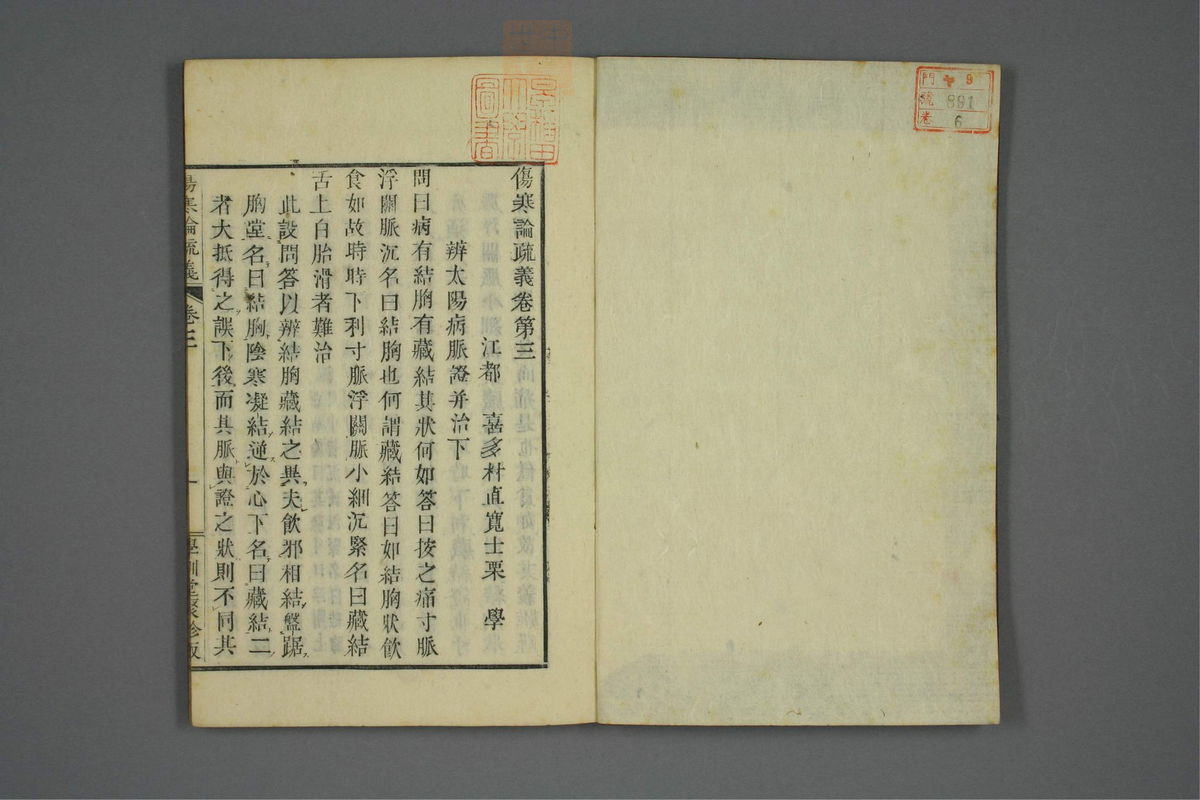 門 9
號 891
卷 6
傷寒論疏義卷第三
江都 喜多村直寬士栗 學
辨太陽病脈證并治下
問曰病有結胸有藏結其狀何如答曰按之痛寸脈
浮關脈沉名曰結胸也何謂藏結答曰如結胸狀飲
食如故時時下利寸脈浮關脈小細沉緊名曰藏結
舌上白胎滑者難治
此設問答以辨結胸藏結之異夫飲邪相結盤踞
胸堂名曰結胸陰寒凝結逆於心下名曰藏結二
者大抵得之誤下後而其脈與證之狀則不同其
傷寒論疏義 卷三 一